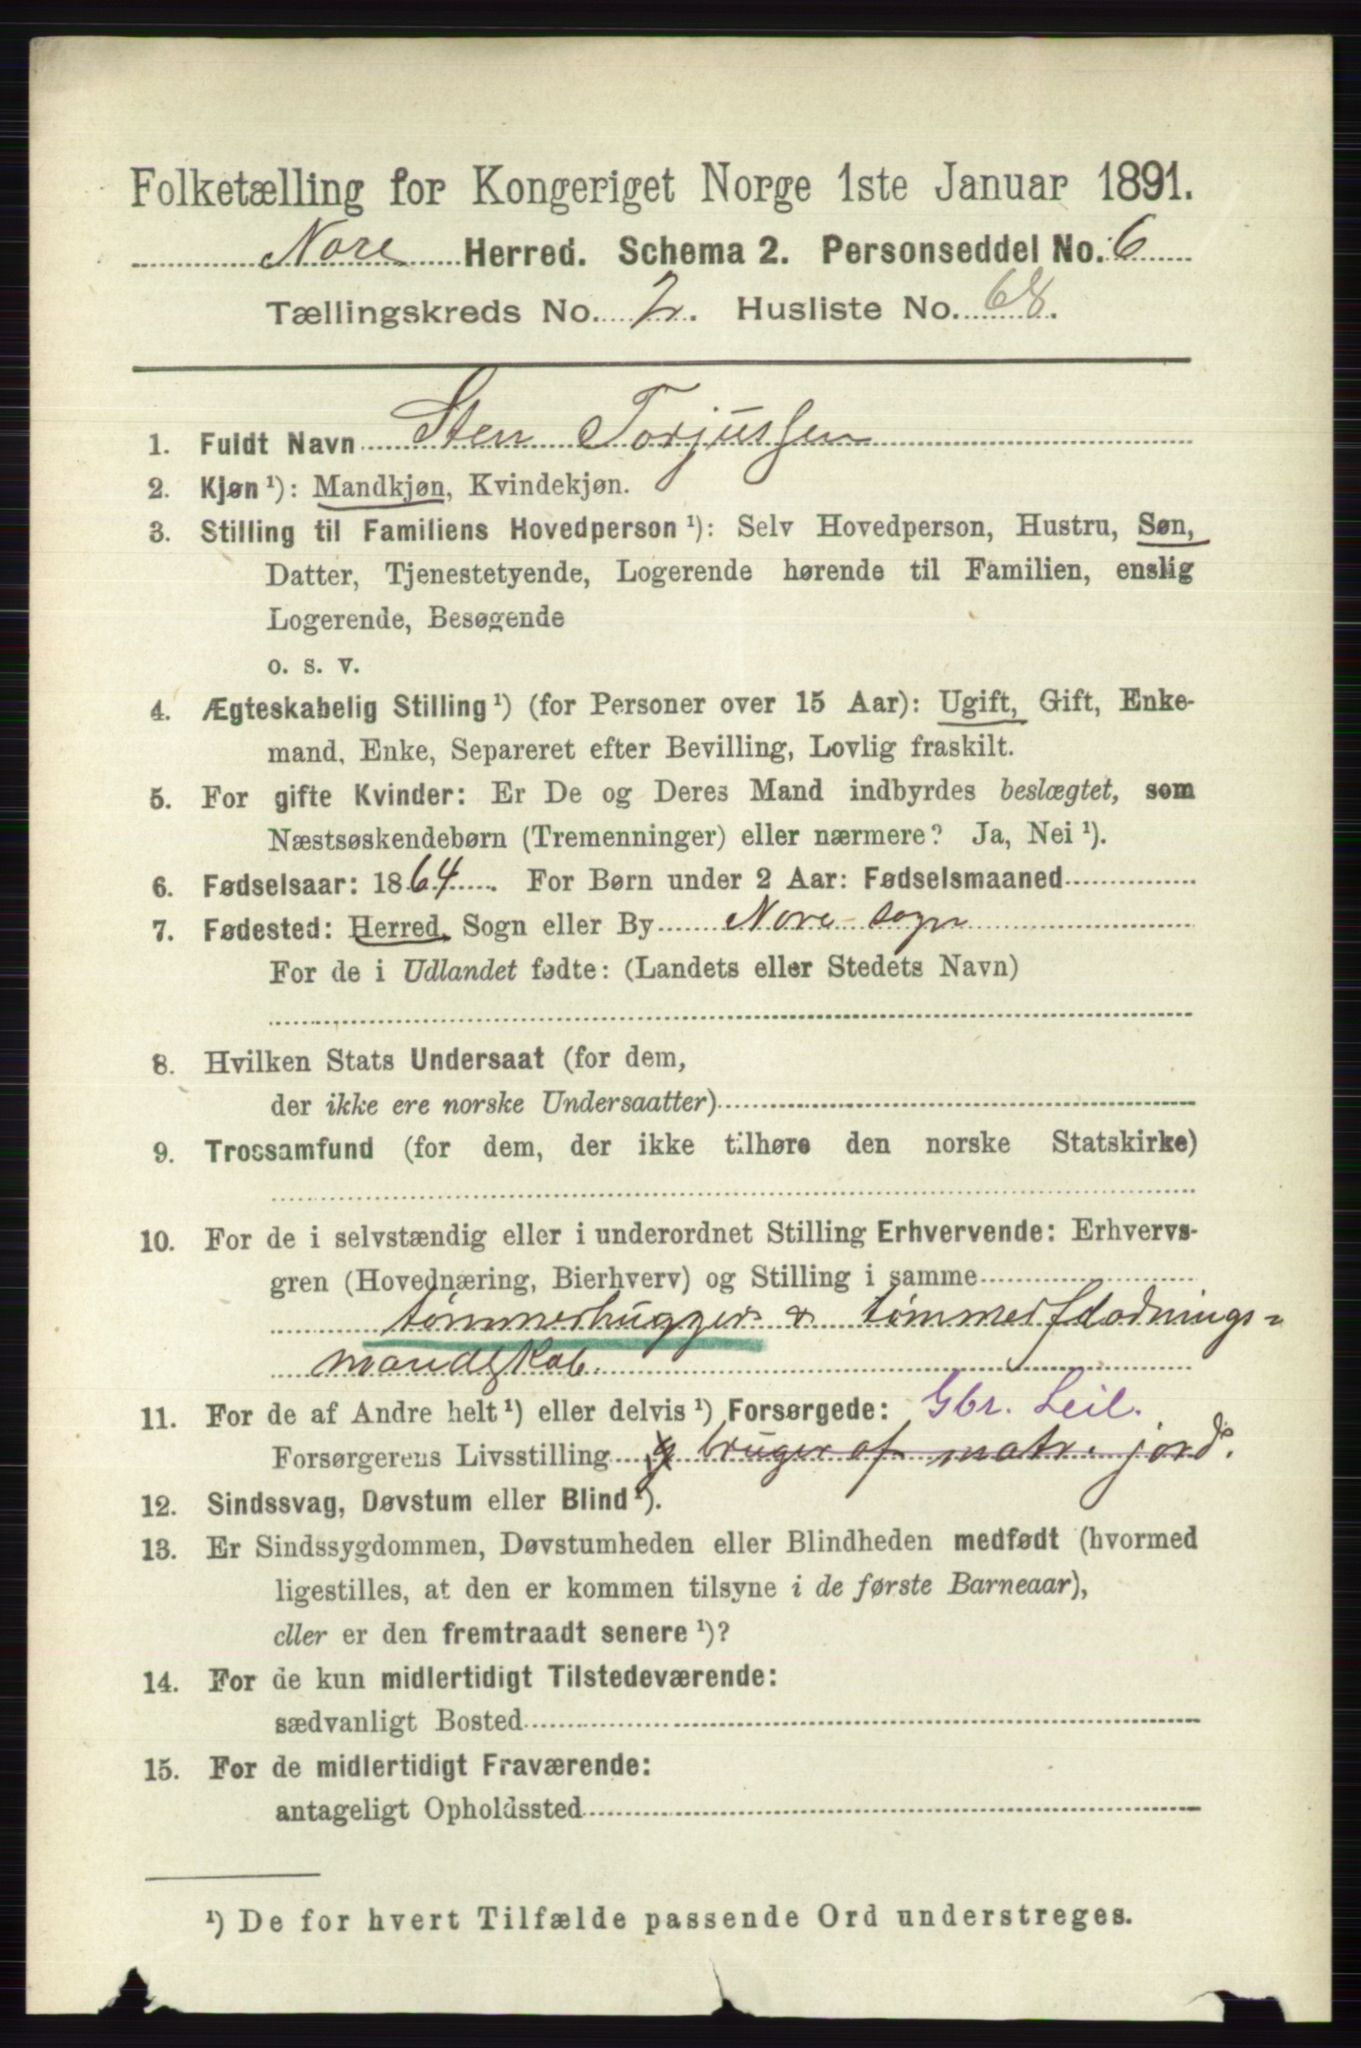 Folketælling for Kongeriget Norge 1ste Januar 1891.
Nore Herred. Schema 2. Personseddel No. 6
Tællingskreds No. 2. Husliste No. 68.
1. Fuldt Navn Sten Torjussen
2. Kjøn ¹): Mandkjøn, Kvindekjøn.
3. Stilling til Familiens Hovedperson ¹): Selv Hovedperson, Hustru, Søn,
Datter, Tjenestetyende, Logerende hørende til Familien, enslig
Logerende, Besøgende
o. s. v.
4. Ægteskabelig Stilling ¹) (for Personer over 15 Aar): Ugift, Gift, Enke-
mand, Enke, Separeret efter Bevilling, Lovlig fraskilt.
5. For gifte Kvinder: Er De og Deres Mand indbyrdes beslægtet, som
Næstsøskendebørn (Tremenninger) eller nærmere? Ja, Nei ¹).
6. Fødselsaar: 1864. For Børn under 2 Aar: Fødselsmaaned
7. Fødested: Herred, Sogn eller By Nore sogn
For de i Udlandet fødte: (Landets eller Stedets Navn)
8. Hvilken Stats Undersaat (for dem,
der ikke ere norske Undersaatter)
9. Trossamfund (for dem, der ikke tilhøre den norske Statskirke)
10. For de i selvstændig eller i underordnet Stilling Erhvervende: Erhvervs-
gren (Hovednæring, Bierhverv) og Stilling i samme
tømmerhugger & tømmerflødnings-
mandskab.
11. For de af Andre helt ¹) eller delvis ¹) Forsørgede: Gbr. Leil.
Forsørgerens Livsstilling g bruger af matr. jord.
12. Sindssvag, Døvstum eller Blind ¹).
13. Er Sindssygdommen, Døvstumheden eller Blindheden medfødt (hvormed
ligestilles, at den er kommen tilsyne i de første Barneaar),
eller er den fremtraadt senere ¹)?
14. For de kun midlertidigt Tilstedeværende:
sædvanligt Bosted
15. For de midlertidigt Fraværende:
antageligt Opholdssted
¹) De for hvert Tilfælde passende Ord understreges.